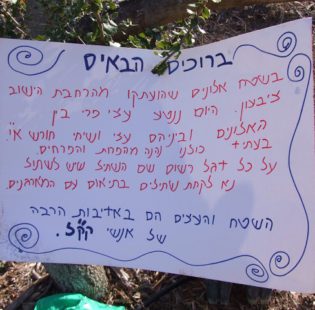 ברוכים הבאים
בשטח אלונים שהועתקו מהרחבת הישוב
ציבעון. היום ננטע עצי פרי בין
האלונים וביניהם עצי ושיחי חורש א"י.
בעתיד כולנו נהנה מהפרות והפרחים.
על כל דגל רשום שם השתיל שיש לשתול
נא לקחת שתילים בתיאום עם המארגנים.
השטח והעצים הם באדיבותה הרבה
של אנשי קק"ל.